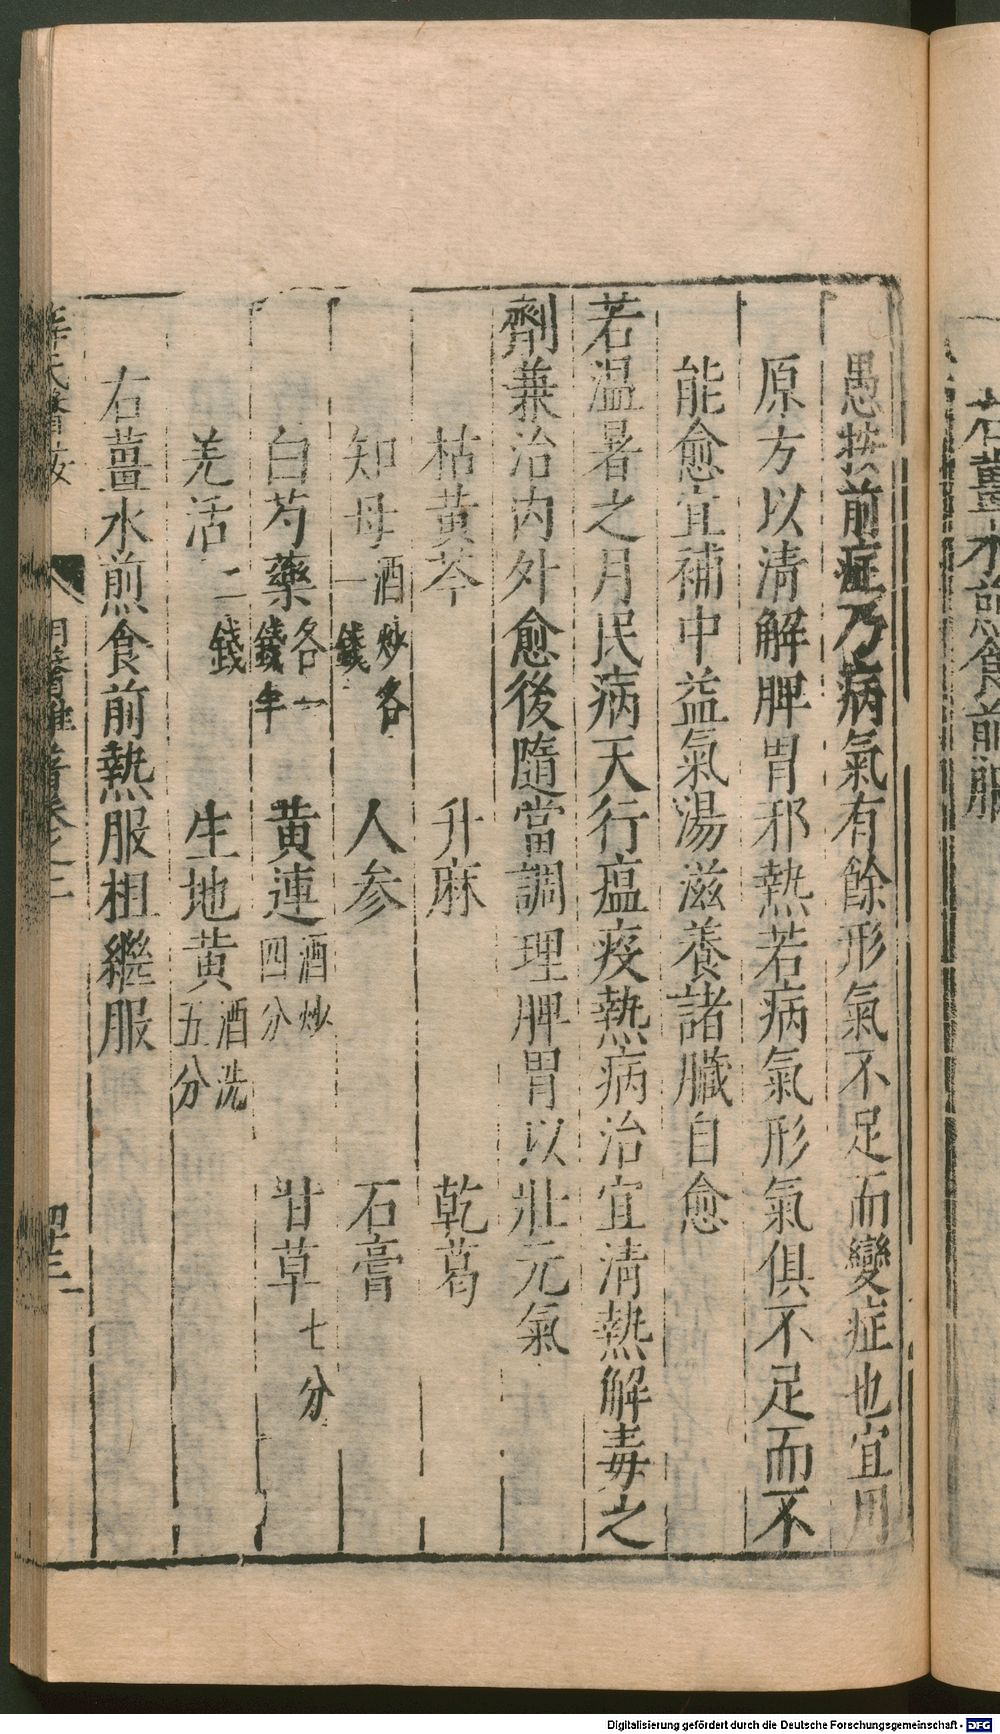 愚按前症乃病氣有餘形氣不足而變症也宜用
原方以清解脾胃邪熱若病氣形氣俱不足而不
能愈宜補中益氣湯滋養諸臟自愈
若温暑之月民病天行瘟疫熱病治宜清熱解毒之
劑兼治内外愈後隨當調理脾胃以壯元氣
枯黄芩 升麻 乾葛
知母酒炒各一錢 人参 石膏
白芍藥各一錢半 黄連酒炒四分 甘草七分
羌活二錢 生地黄酒洗五分
右薑水煎食前熱服相繼服
右薑水煎食前服
Digitalisierung gefördert durch die Deutsche Forschungsgemeinschaft - DFG